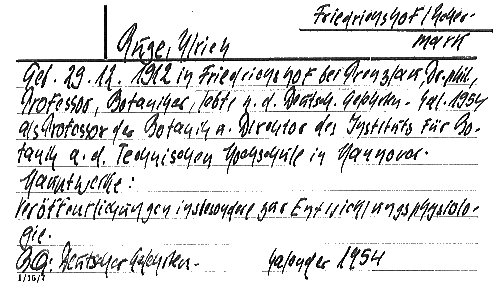 Friedrichshof/Ucker-
mark
Ruge, Ulrich
Geb. 29.12.1912 in Friedrichshof bei Prenzlau, Dr.phil,
Professor, Botaniker, lebte n. d. Deutsch. Gelehrten-Kal. 1954
als Professor der Botanik u. Direktor des Instituts für Bo-
tanik a. d. Technischen Hochschule in Hannover.
Hauptwerke:
Veröffentlichungen insbesondere zur Entwicklungsphysiolo-
gie.
BQ: Deutscher Gelehrten- Kalender 1954
1/16/7